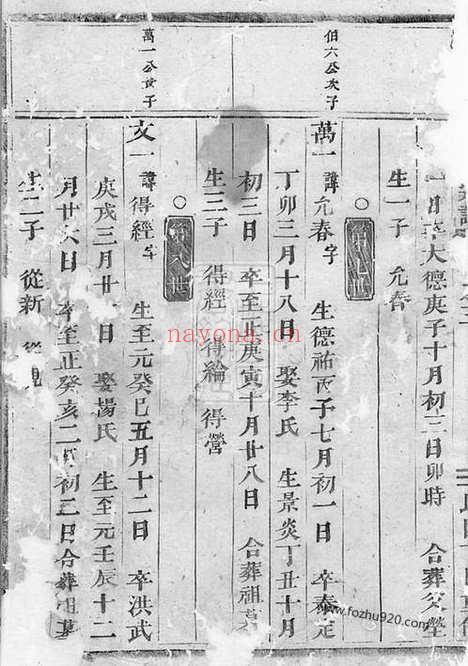 一日卒大德庚子十月初三日卯時 合葬父塋
生一子 允春
伯六公次子
○第七世
萬一諱允春字 生德祐丙子七月初一日 卒泰定
丁卯三月十八日 娶李氏 生景炎丁丑十月
初三日 卒至正庚寅十月廿八日 合葬祖墓
生三子 得經 得綸 得營
萬一公長子
○第八世
文一諱得經字 生至元癸巳五月十二日 卒洪武
庚戌三月廿日 娶楊氏 生至元壬辰十二
月廿六日 卒至正癸亥二月初三日合葬祖墓
生二子 從新
nayona.cn
www.fozhu920.com